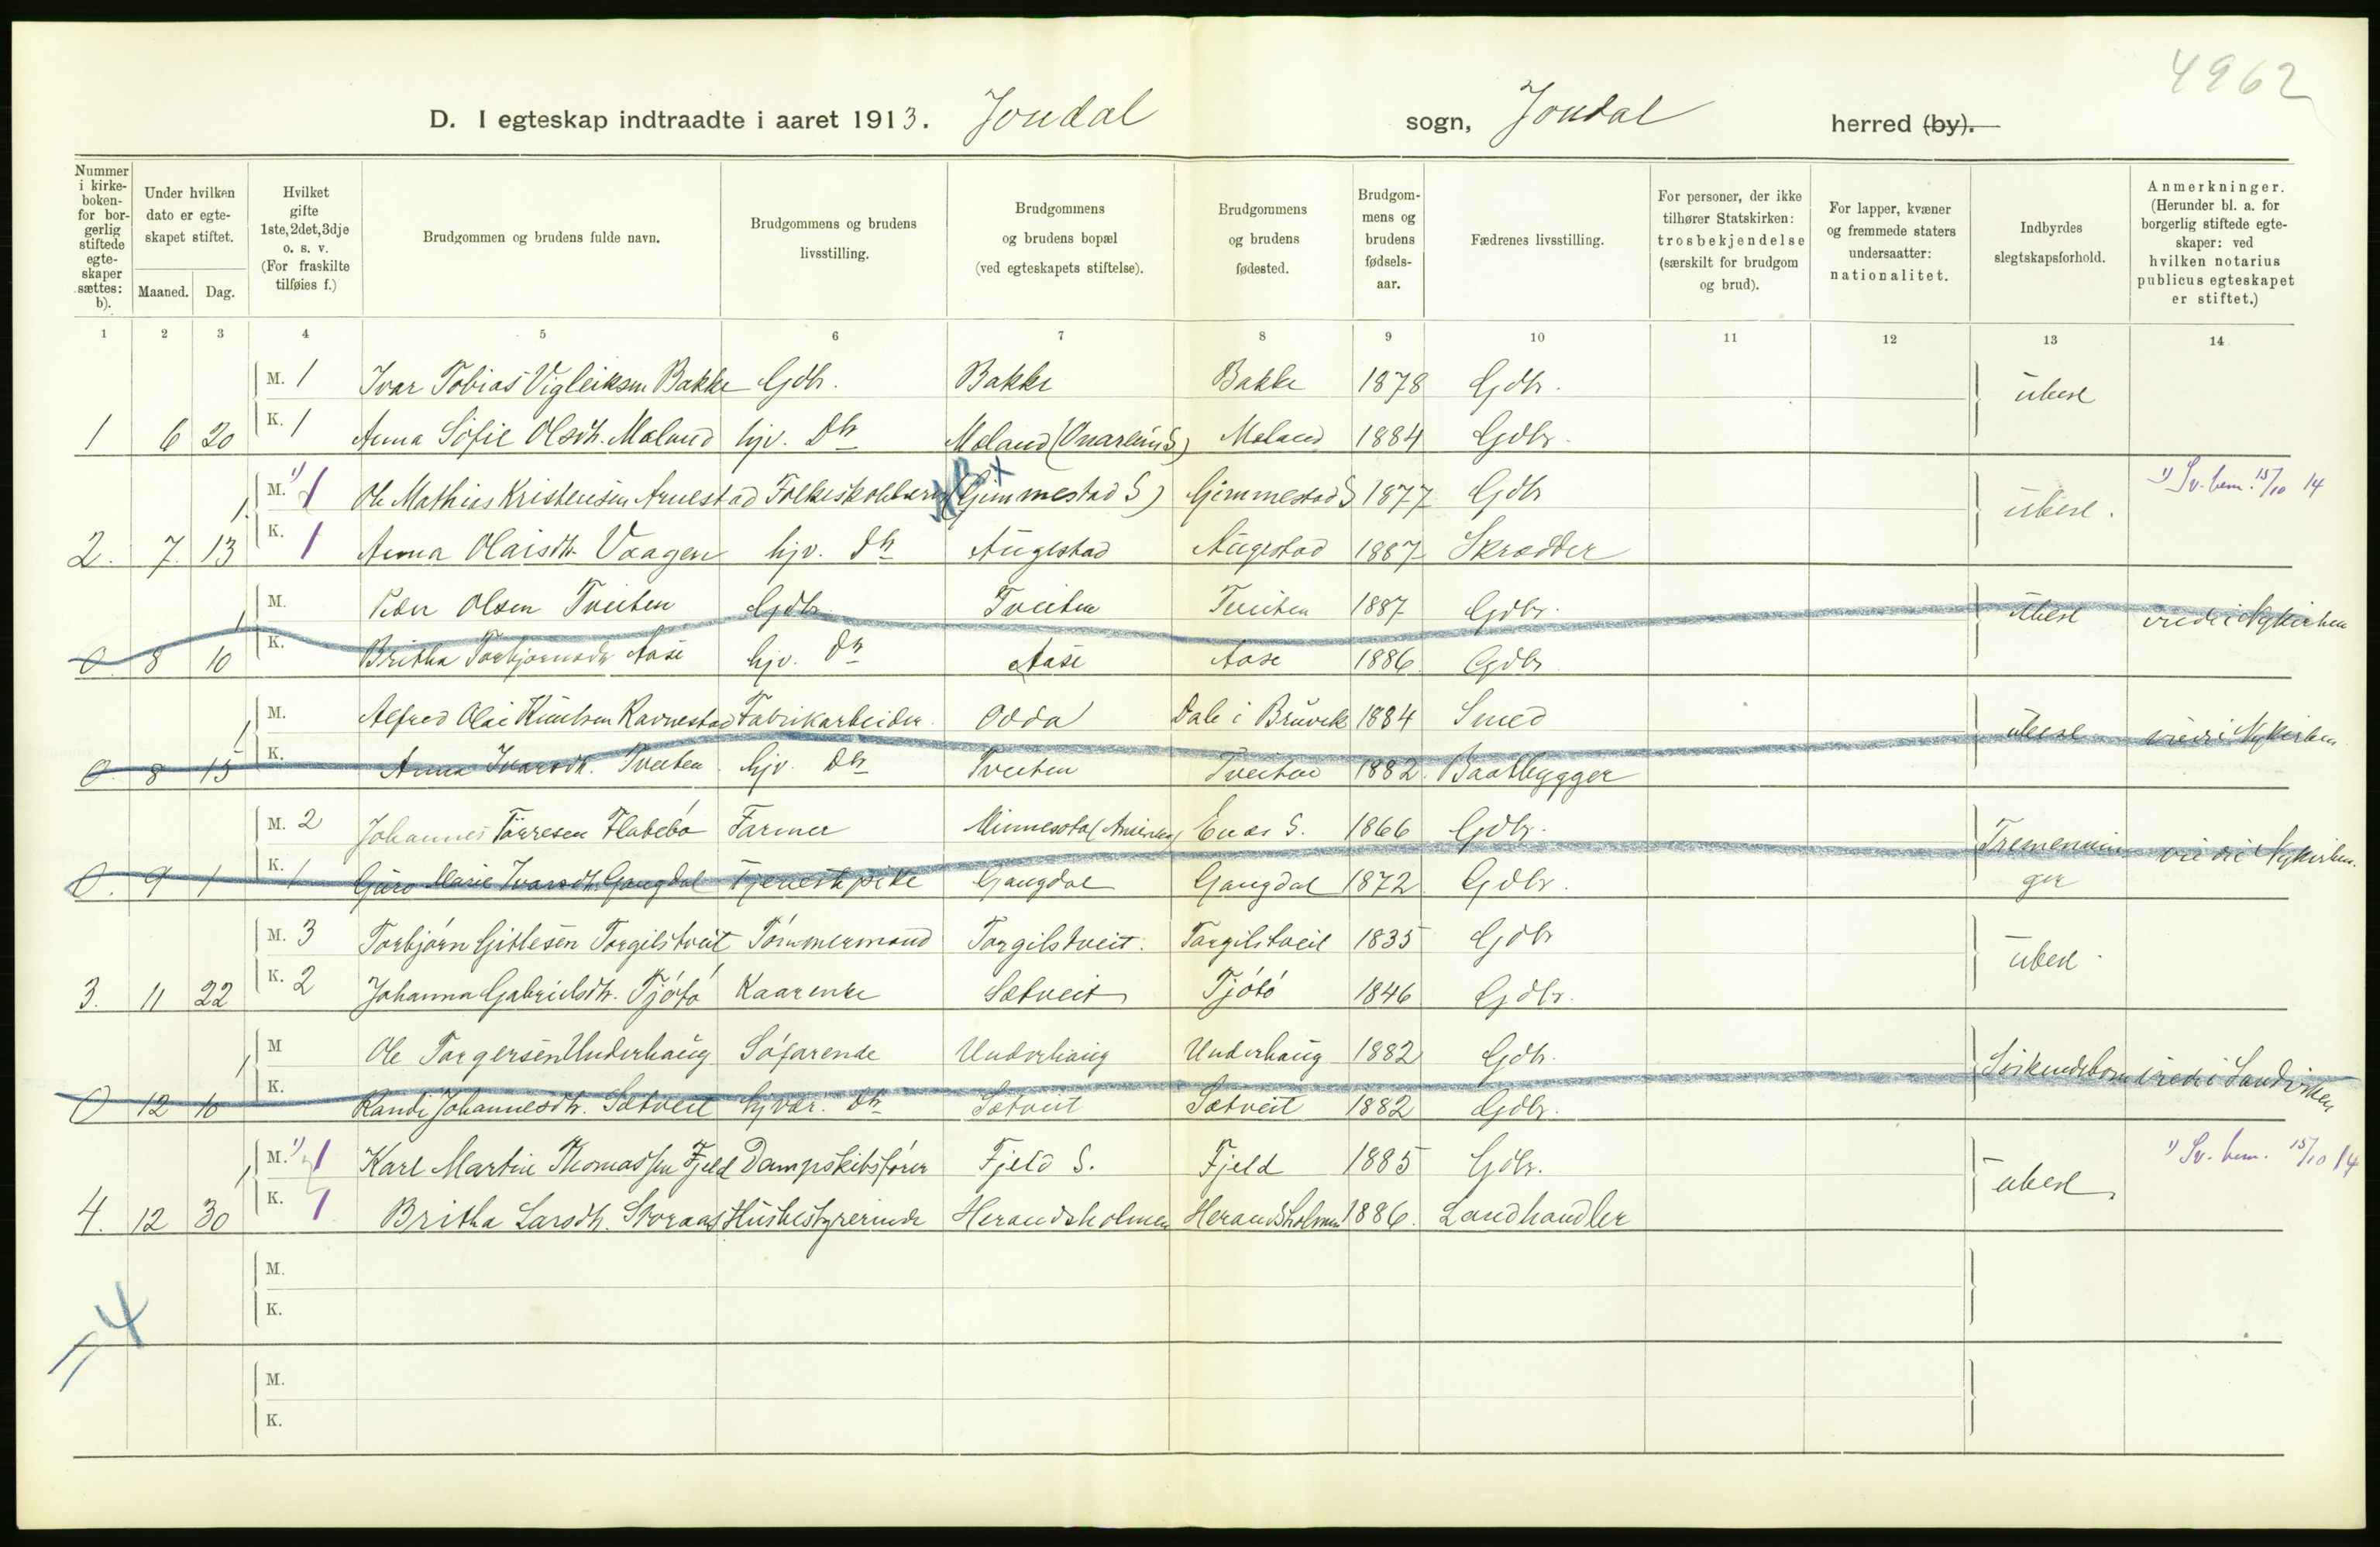 4962
D. I egteskap indtraadte i aaret 1913. Jondal sogn, Jondal herred (by).
Nummer i kirke-boken- for bor-gerlig stiftede egte-skaper sættes: b).
Under hvilken dato er egte-skapet stiftet.
Maaned. Dag.
Hvilket gifte 1ste, 2det, 3dje o. s. v. (For fraskilte tilføies f.)
Brudgommen og brudens fulde navn.
Brudgommens og brudens livsstilling.
Brudgommens og brudens bopæl (ved egteskapets stiftelse).
Brudgommens og brudens fødested.
Brudgom-mens og brudens fødsels-aar.
Fædrenes livsstilling.
For personer, der ikke tilhører Statskirken: trosbekjendelse (særskilt for brudgom og brud).
For lapper, kvæner og fremmede staters undersaatter: nationalitet.
Indbyrdes slegtskapsforhold.
Anmerkninger. (Herunder bl. a. for borgerlig stiftede egte-skaper: ved hvilken notarius publicus egteskapet er stiftet.)
1 2 3 4 5 6 7 8 9 10 11 12 13 14
M. 1 Ivar Tobias Vigleiksen Bakke Gdbr. Bakke Bakke 1878 Gdbr. ubesl
1 6 20 K. 1 Anna Sofie Olsdtr. Moland hjv. Dtr Moland Moland 1884 Gdbr.
M. 1) 1 Ole Mathias Kristensen Arnestad (Gimmestad S) Gimmestad S 1877 Gdbr ubesl. 1) Sv. bem. 15/10 14
2. 7. 13 K. 1 Anna Olaisdtr. Vaagen hjv. Dtr Augestad Augestad 1887 Skrædder
M. Peder Olsen Tveiten Gdbr Tveiten Tveiten 1887 Gdbr. ubesl viede i Nykirken
0 8 10 K. Britha Torbjørnsdtr Aase hjv. Dtr Aase Aase 1886 Gdbr
M. Alfred Olai Knutsen Ravnestad Fabrikarbeider. Odda Dale i Bruvik 1884 Smed ubesl viede i Nykirken
0. 8 15 K. Anna Ivarsdtr. Tveiten hjv. Dtr Tveiten Tveiten 1882. Baatbygger
M. 2 Johannes Tørresen Flatebø Farmer Minnesota (Amerika) S. 1866 Gdbr. Tremennin viede i Nykirken.
0. 9 1 K. 1 Guro Marie Ivarsdtr. Gangdal Tjenestpike Gangdal Gangdal 1872 Gdbr. ger
M. 3 Torbjørn Gitlesen Torgilstveit Tømmermand Torgilstveit. Torgilstveit 1835 Gdbr ubesl.
3. 11 22 K. 2 Johanna Gabrielsdtr. Tjøtø Kaarenke Sætveit Tjøtø 1846 Gdbr.
M Ole Torgersen Underhaug Søfarende Underhaug Underhaug 1882 Gdbr. Søskendebørn viede i Sandviken
0 12 10 K. Randi Johannesdtr. Sætveit hjvær. Dtr Sætveit Sætveit 1882 Gdbr.
M. 1) 1 Karl Martin Thomassen Fjeld Dampskibsfører Fjeld S. Fjeld 1885 Gdbr. ubesl. 1) Sv. bem. 15/10 14
4. 12 30 K. 1 Britha Larsdtr. Skoraas Husbestyrerinde Herandsholmen Herandsholmen 1886. Landhandler
M.
K.
= 4
M.
K.